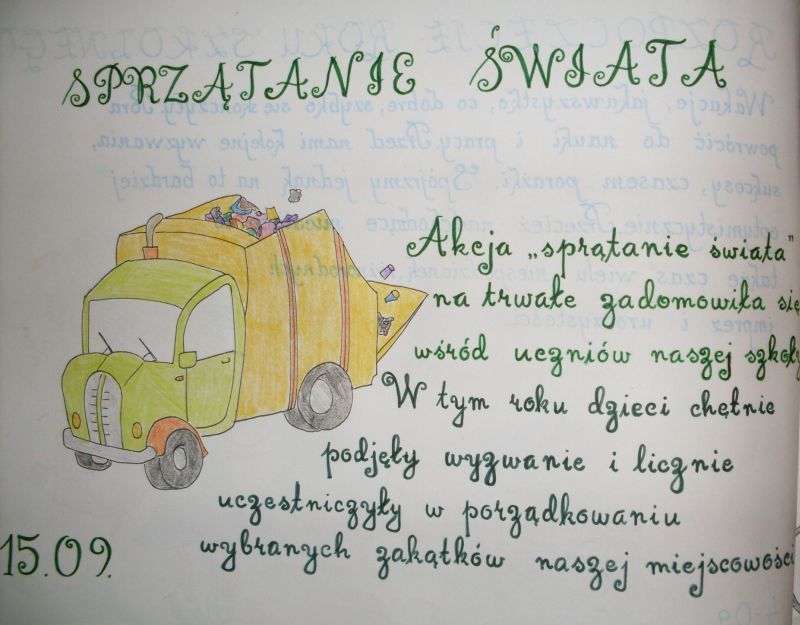 SPRZĄTANIE ŚWIATA
Akcja „sprątanie świata”
na trwałe zadomowiła się
wśród uczniów naszej szkoły
W tym roku dzieci chętnie
podjęły wyzwanie i licznie
uczestniczyły w porządkowaniu
wybranych zakątków naszej miejscowości
15.09.